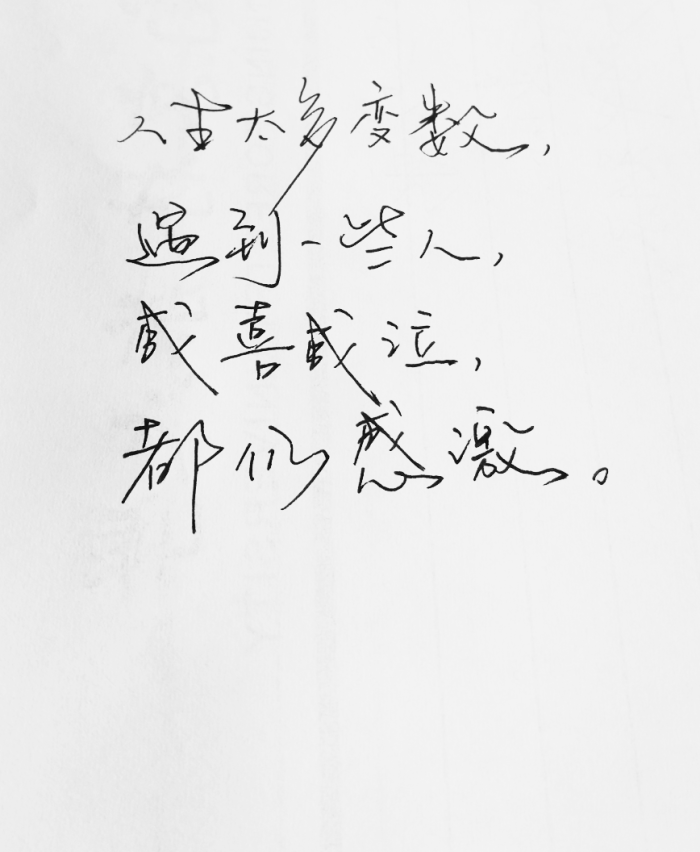 人生太多变数,
遇到一些人,
或喜或泣,
都仍感激。